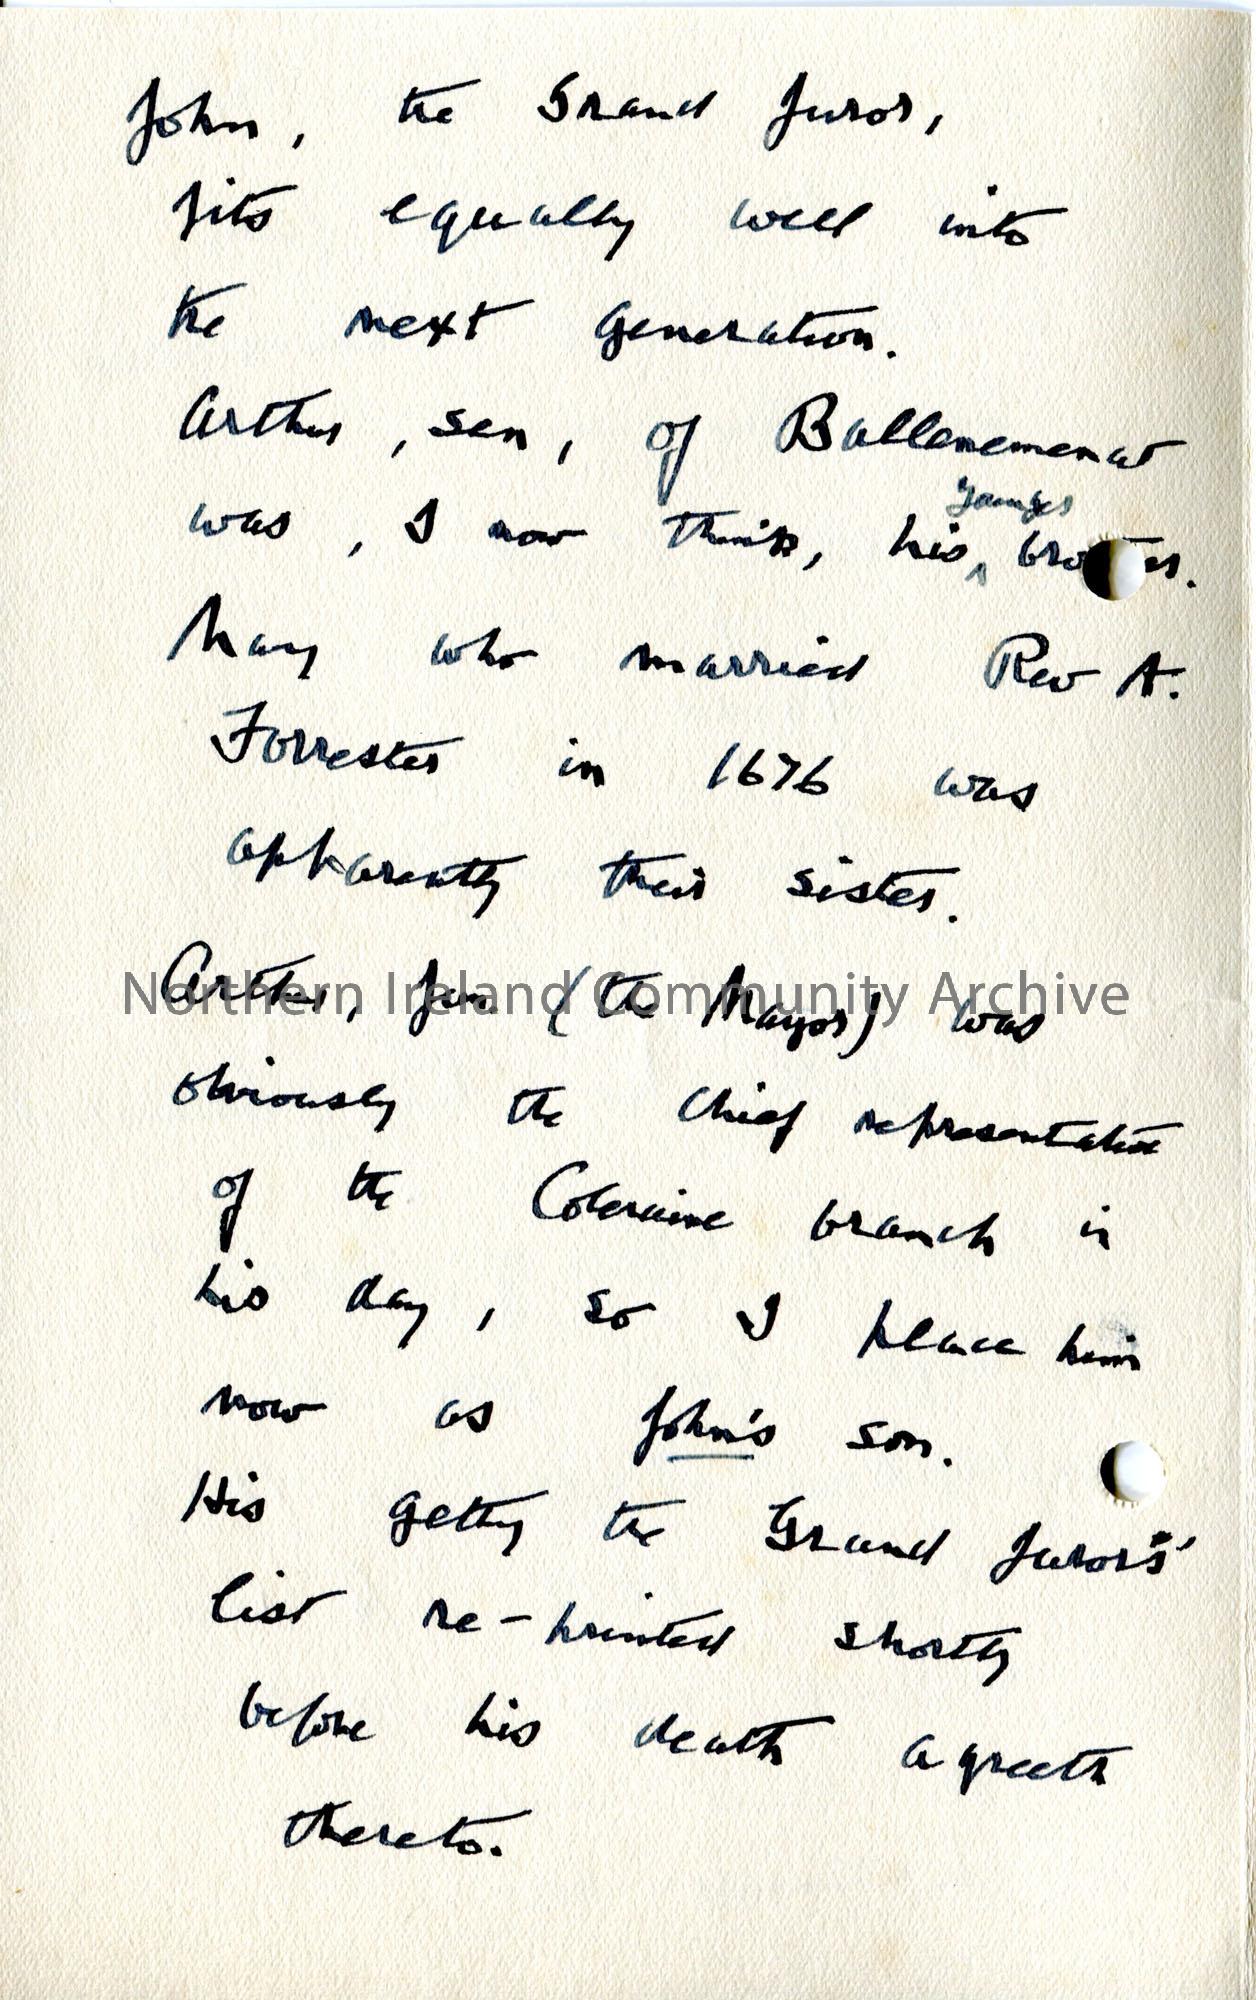 John, the Grand Juror,
fits equally well into
the next generation.
Arthur, sen, of Ballenemenat
was, I now think, his ^ younger brother.
Mary who married Rev A.
Forrester in 1676 was
apparently their sister.
Arthur, Jun. (the Mayor) was
Northern Ireland Community Archive
obviously the chief representative
of the Coleraine branch in
his day, so I place him
now as John's son.
His getting the Grand Jurors'
list re-printed shortly
before his death agreeth
thereto.